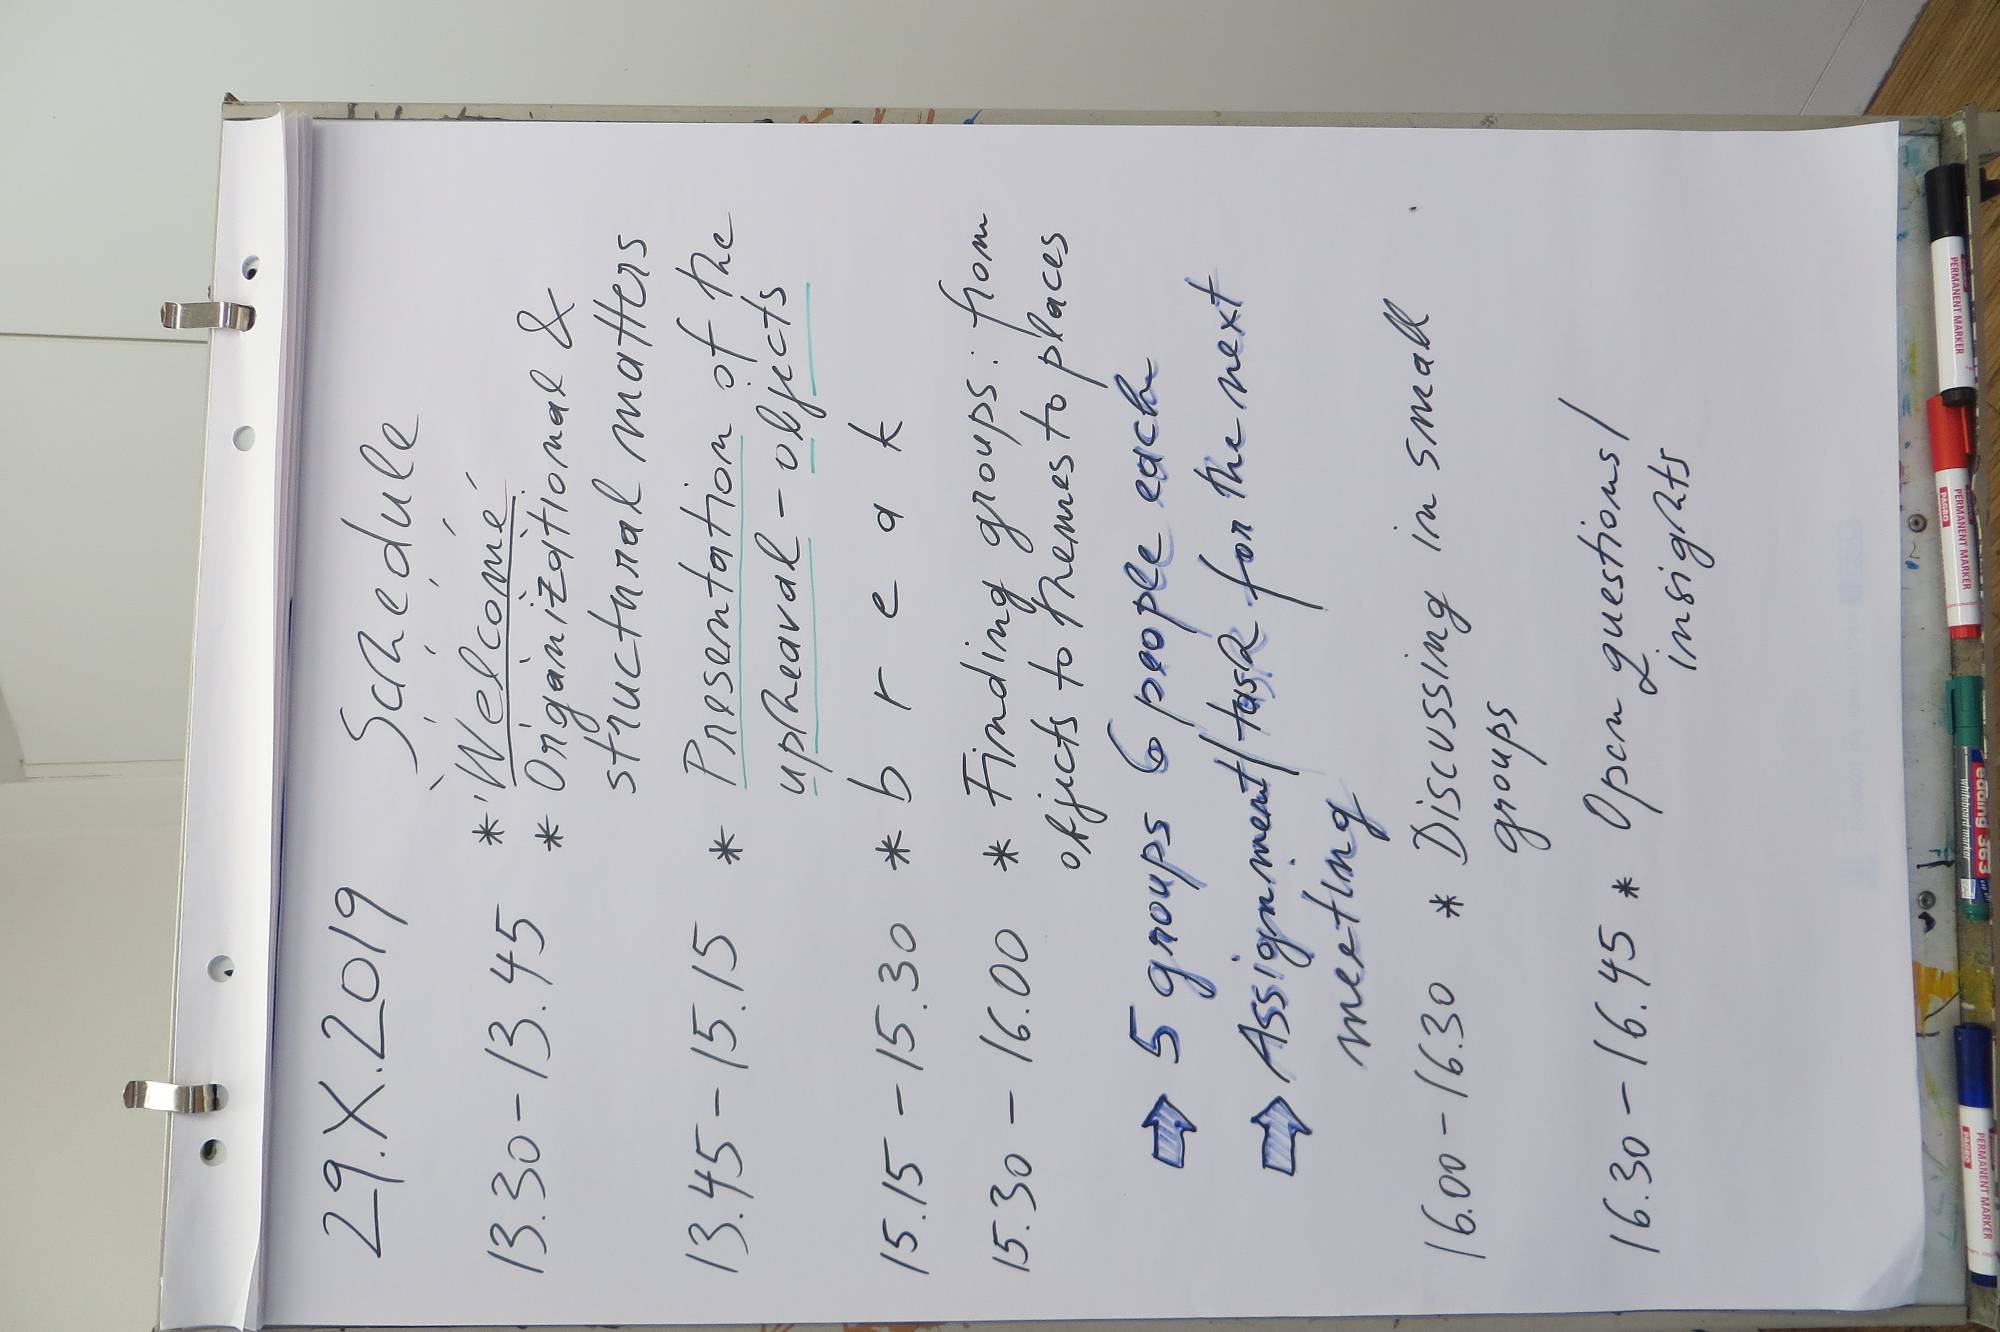 29.X.2019 Schedule
13.30-13.45 * Welcome
* Organizational &
structural matters
13.45-15.15 * Presentation of the
upheaval-objects
15.15-15.30 * break
15.30-16.00 * Finding groups: from
objects to themes to places
⇒ 5 groups 6 people each
⇒ Assignment/task for the next
meeting
16.00-16.30 * Discussing in small
groups
16.30-16.45 * Open questions/
insights
PERMANENT MARKER
PERMANENT MARKER
PAGRO
PERMANENT MARKER
PERMANENT MARKER
edding 363
whiteboard marker
PERMANENT MARKER
PAGRO
PERMANENT MARKER